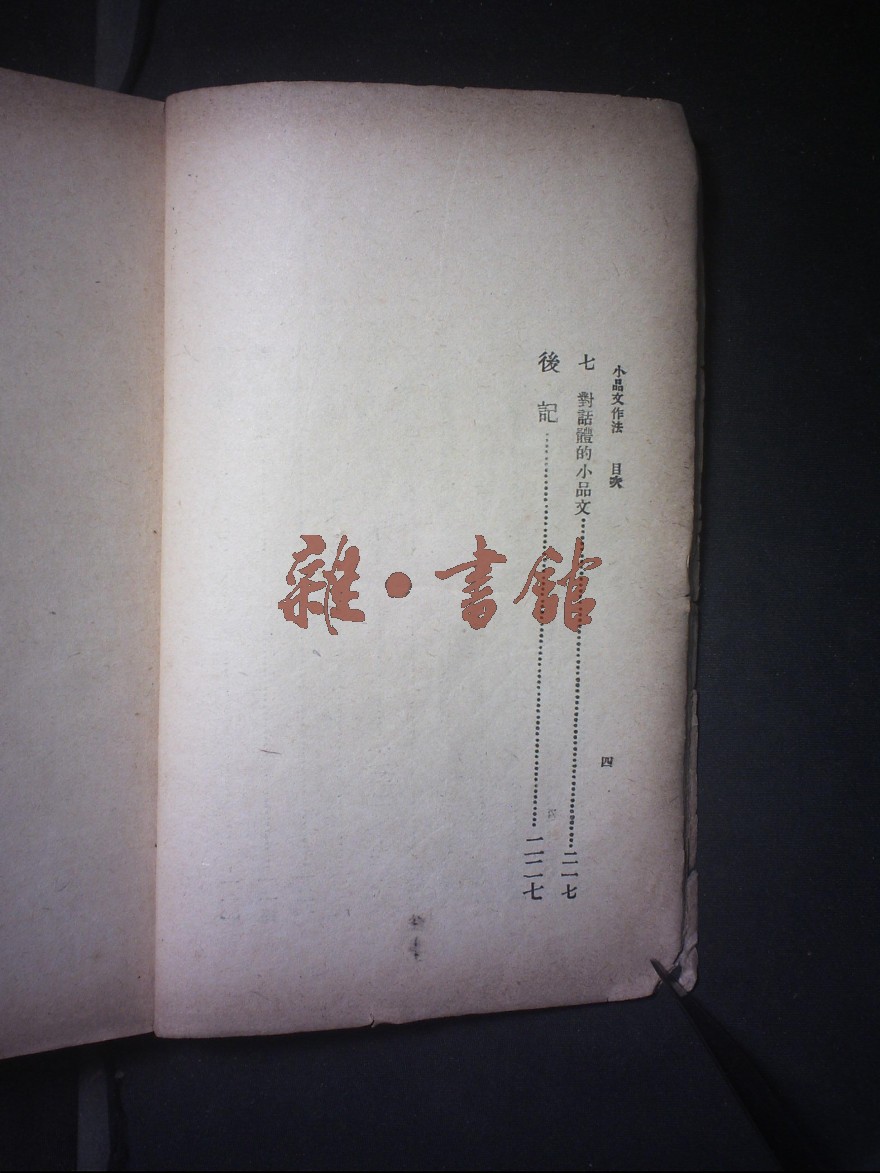 小品文作法　目次
四
七　對話體的小品文……二一七
後記……二二七
雜·書館